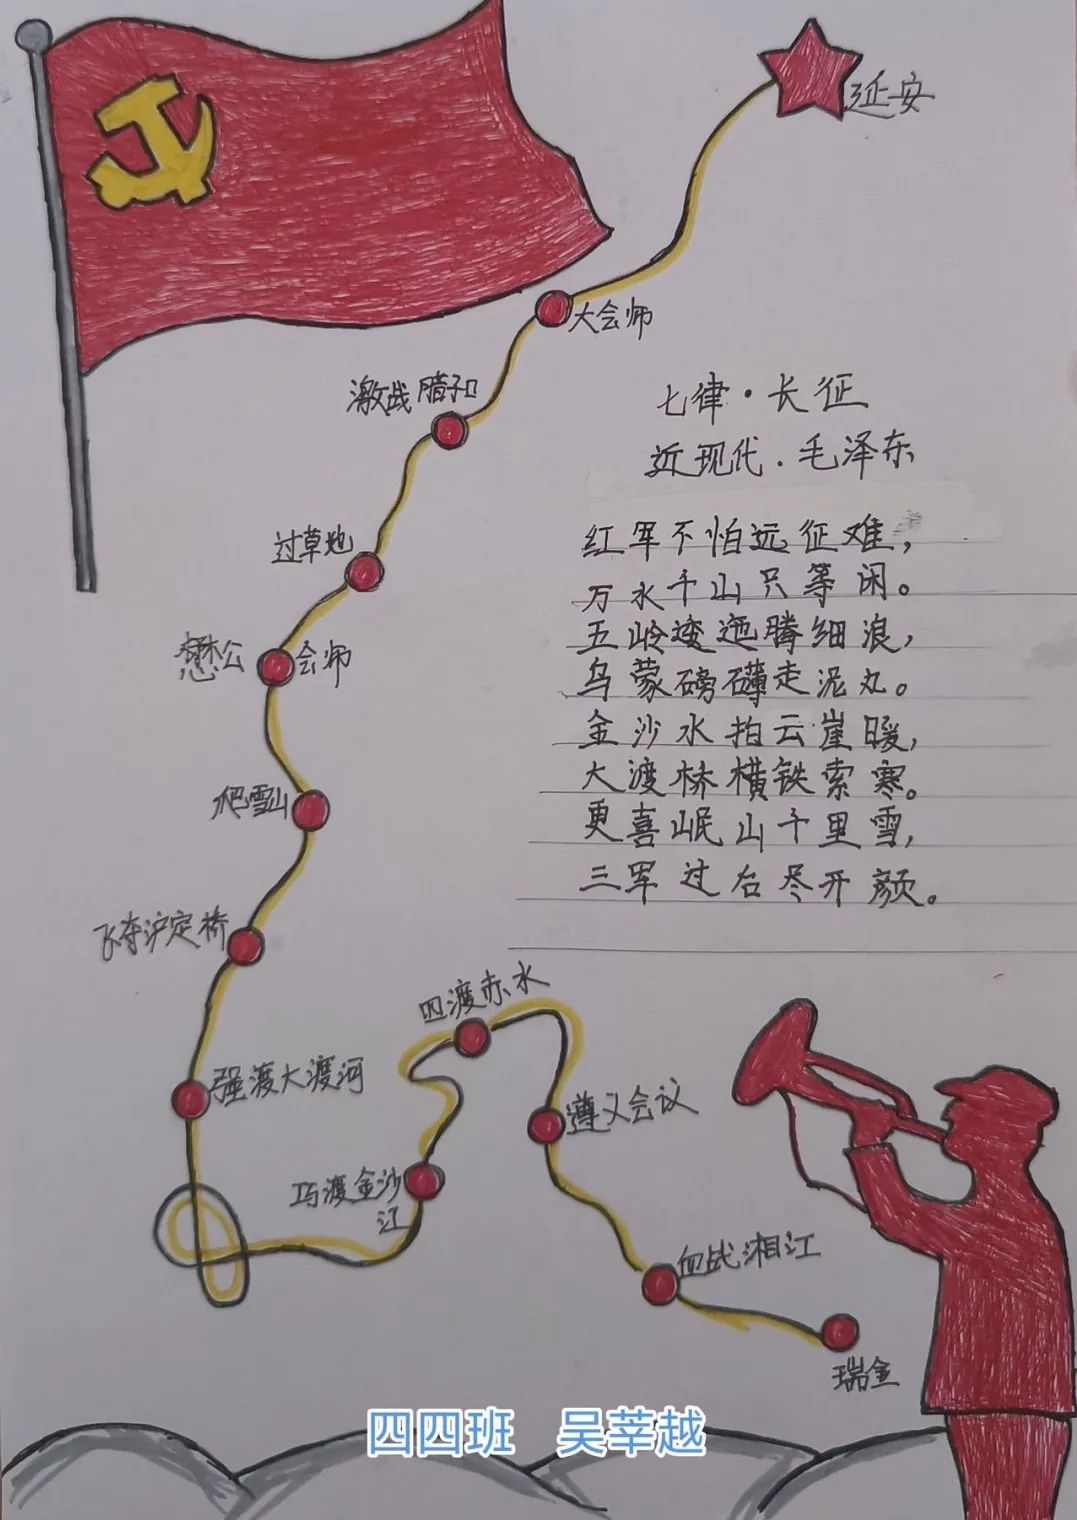 延安
大会师
激战腊子口
过草地
懋公会师
爬雪山
飞夺泸定桥
强渡大渡河
巧渡金沙
江
四渡赤水
遵义会议
血战湘江
瑞金
七律·长征
近现代.毛泽东
红军不怕远征难，
万水千山只等闲。
五岭逶迤腾细浪，
乌蒙磅礴走泥丸。
金沙水拍云崖暖，
大渡桥横铁索寒。
更喜岷山千里雪，
三军过后尽开颜。
四四班 吴莘越